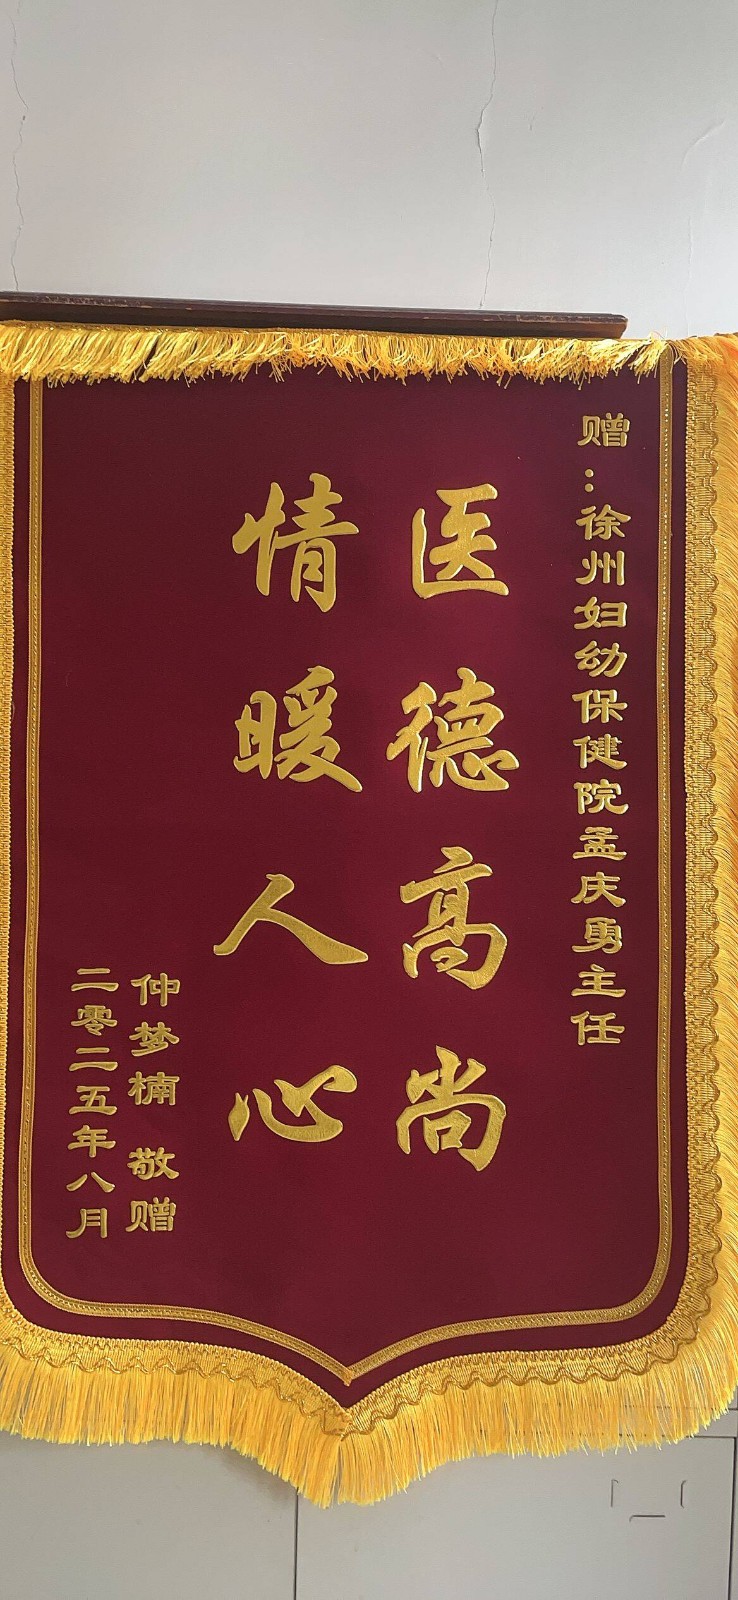 赠：徐州妇幼保健院孟庆勇主任
医德高尚
情暖人心
仲梦楠 敬赠
二零二五年八月